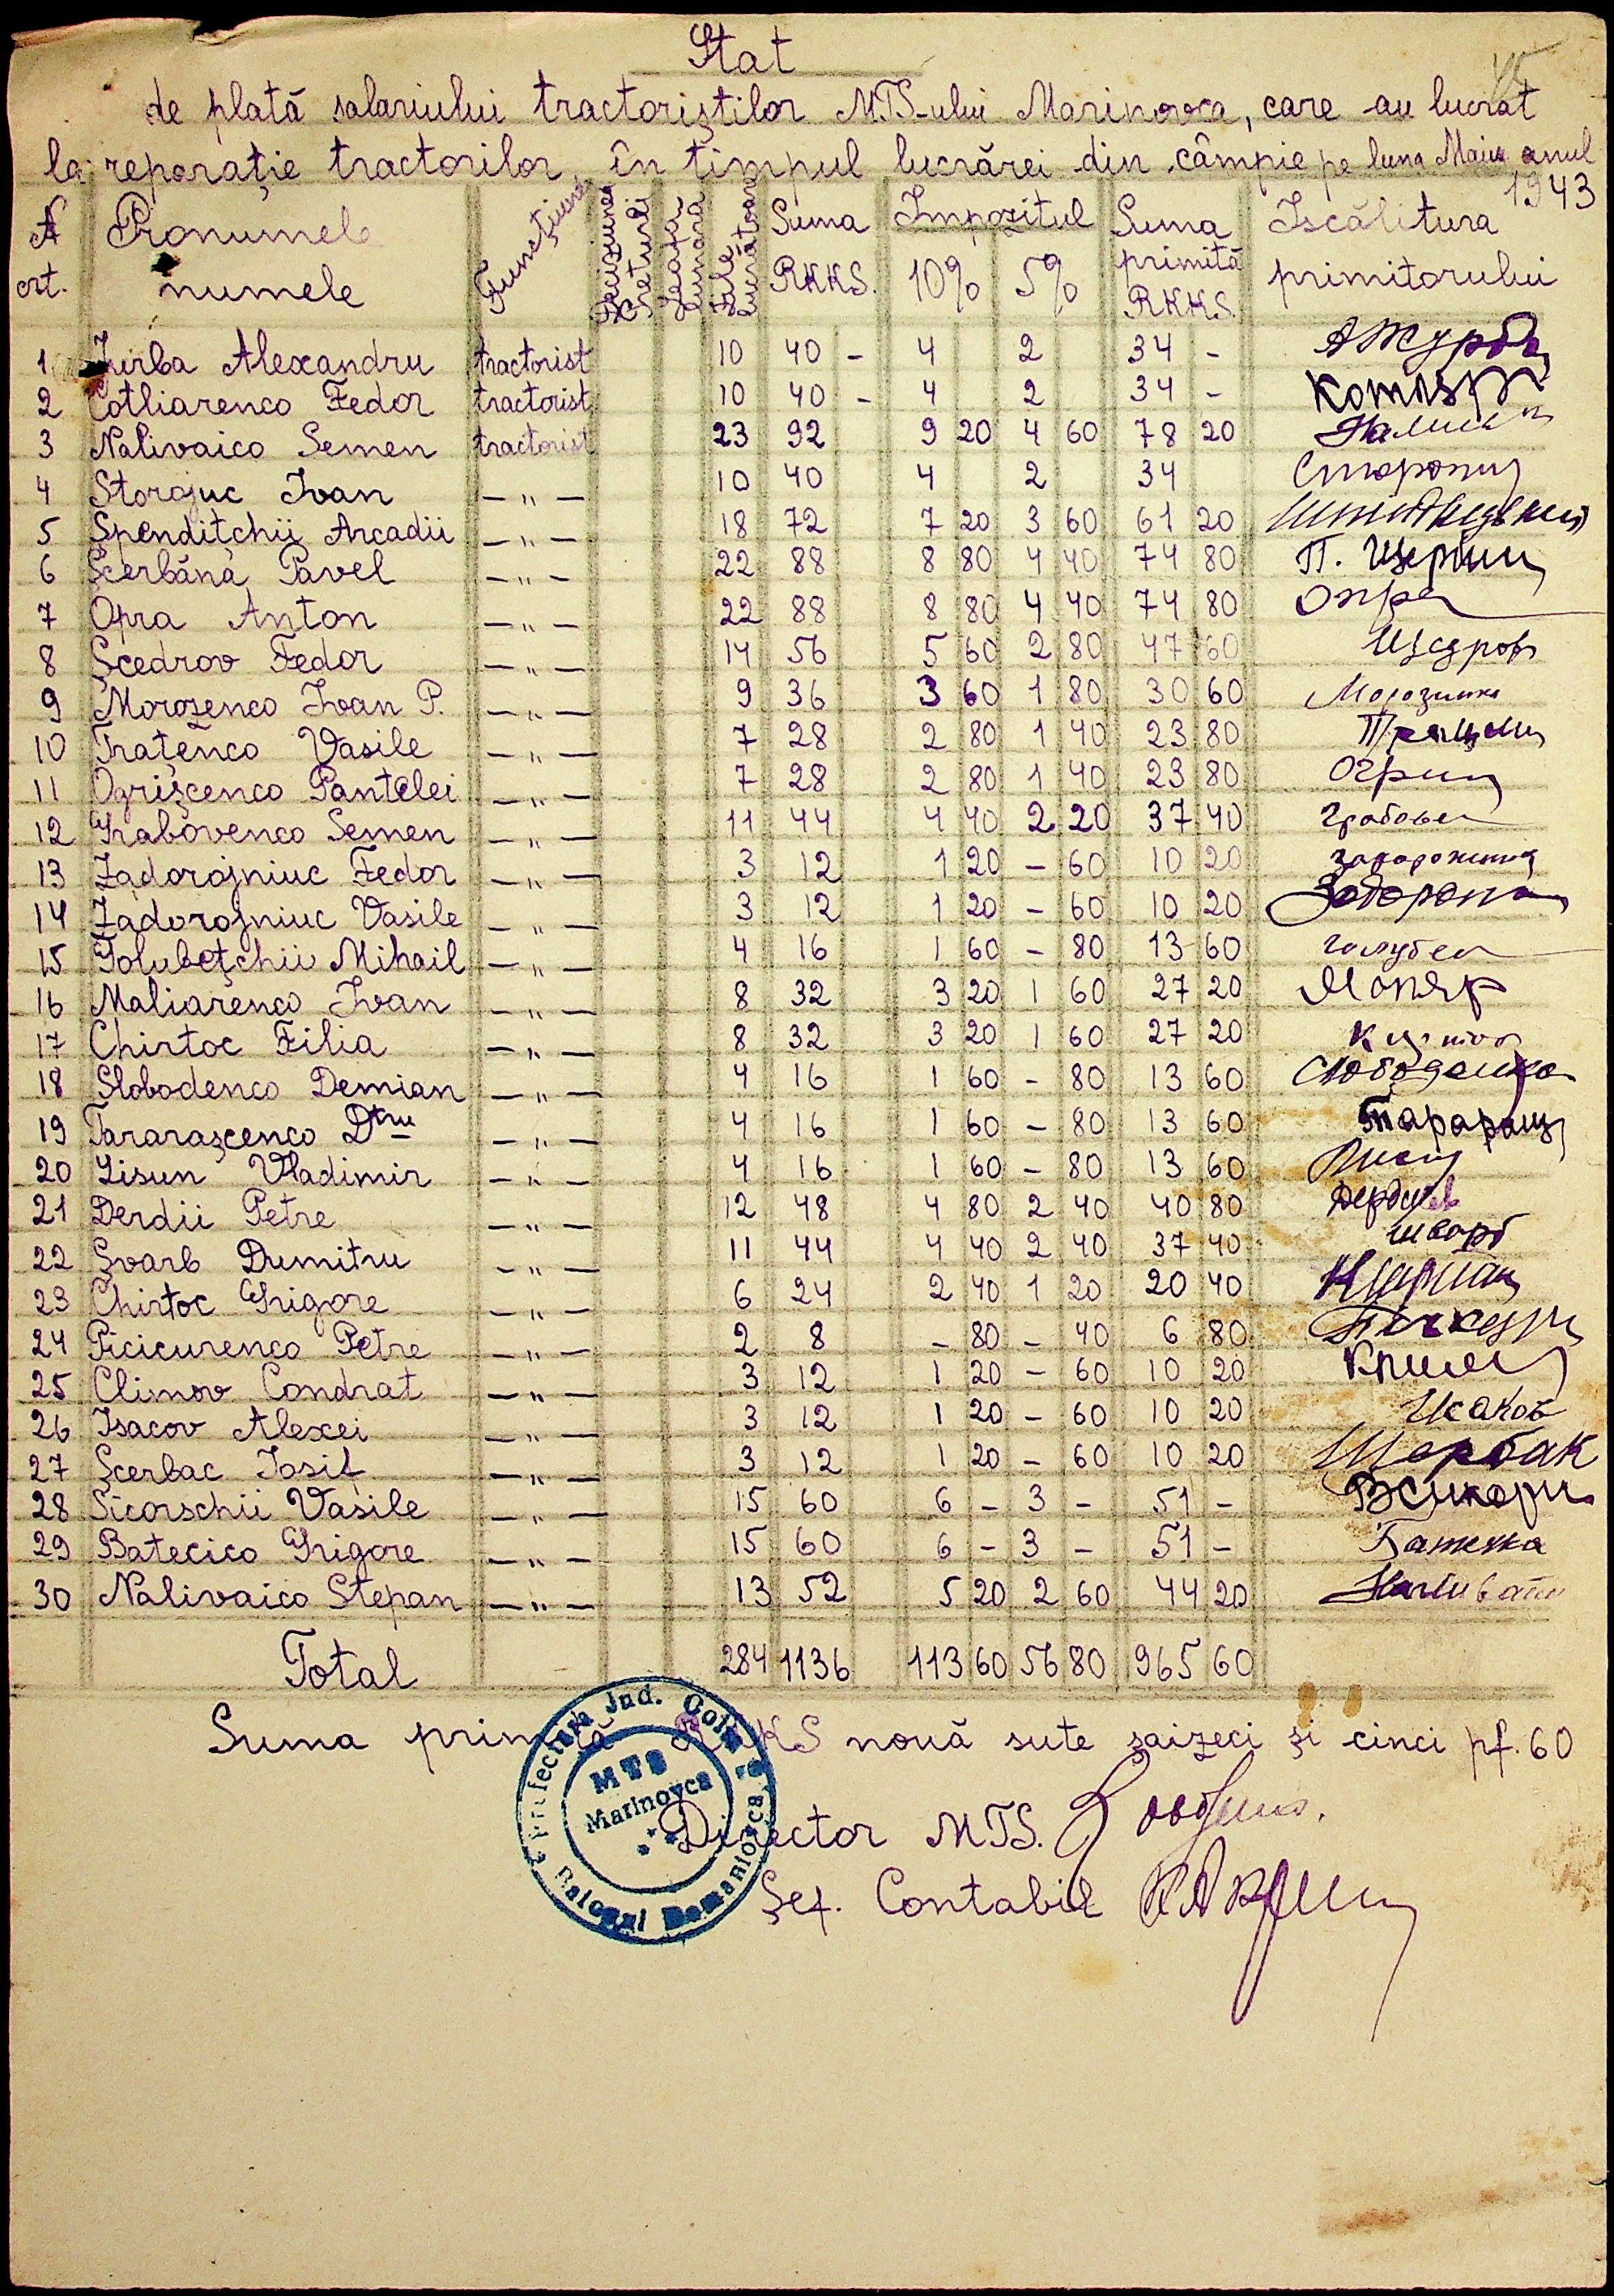 Stat
de plată salariului tractoriștilor MTS-ului Marinovca, care au lucrat
la reparație tractorilor, în timpul lucrărei din câmpie pe luna Maiu anul
1943
N crt. Pronumele numele Funcțiunea Leafa lunara Zile lucrătoare Suma RKKS. Impozitul 10% 5% Suma primită RKKS. Iscălitura primitorului
1 Jurba Alexandru tractorist 10 40 - 4 2 34 - АЖурба
2 Cotliarenco Fedor tractorist 10 40 - 4 2 34 - Котляр
3 Nalivaico Semen tractorist 23 92 9 20 4 60 78 20
4 Storojuc Ivan — „ — 10 40 4 2 34
5 Spendițchii Arcadii — „ — 18 72 7 20 3 60 61 20
6 Șcerbăna Pavel — „ — 22 88 8 80 4 40 74 80
7 Opra Anton — „ — 22 88 8 80 4 40 74 80 Опра
8 Șcedrov Fedor — „ — 14 56 5 60 2 80 47 60 Щедров
9 Morozenco Ivan P. — „ — 9 36 3 60 1 80 30 60
10 Trațenco Vasile — „ — 7 28 2 80 1 40 23 80
11 Ogrișcenco Pantelei — „ — 7 28 2 80 1 40 23 80 Огрищ
12 Grabovenco Semen — „ — 11 44 4 40 2 20 37 40 Грабовен
13 Zadorojniuc Fedor — „ — 3 12 1 20 - 60 10 20
14 Zadorojniuc Vasile — „ — 3 12 1 20 - 60 10 20
15 Golubețchii Mihail — „ — 4 16 1 60 - 80 13 60 Голубец
16 Maliarenco Ivan — „ — 8 32 3 20 1 60 27 20 Маляр
17 Chirtoc Filia — „ — 8 32 3 20 1 60 27 20
18 Slobodenco Demian — „ — 4 16 1 60 - 80 13 60 Слободенко
19 Tararașcenco Dtru — „ — 4 16 1 60 - 80 13 60 Тараращ
20 Lisun Vladimir — „ — 4 16 1 60 - 80 13 60 Лису
21 Derdii Petre — „ — 12 48 4 80 2 40 40 80
22 Șvarb Dumitru — „ — 11 44 4 40 2 40 37 40 шварб
23 Chirtoc Grigore — „ — 6 24 2 40 1 20 20 40
24 Picicurenco Petre — „ — 2 8 - 80 - 40 6 80
25 Climov Condrat — „ — 3 12 1 20 - 60 10 20 Клим
26 Isacov Alexei — „ — 3 12 1 20 - 60 10 20 Исаков
27 Șcerbac Iosif — „ — 3 12 1 20 - 60 10 20 Щербак
28 Sicorschii Vasile — „ — 15 60 6 - 3 - 51 - ВСикорс
29 Batecico Grigore — „ — 15 60 6 - 3 - 51 -
30 Nalivaico Stepan — „ — 13 52 5 20 2 60 44 20
Total 284 1136 113 60 56 80 965 60
Suma primită RKKS nouă sute șaizeci și cinci pf. 60
Prefectura Jud. Golta
MTS
Marinovca
Raionul Domaniovca
Director MTS.
Șef. Contabil